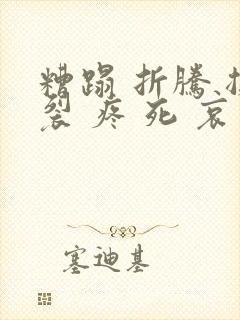 糟蹋 折騰
裂 疼 死 哀
塞迪基